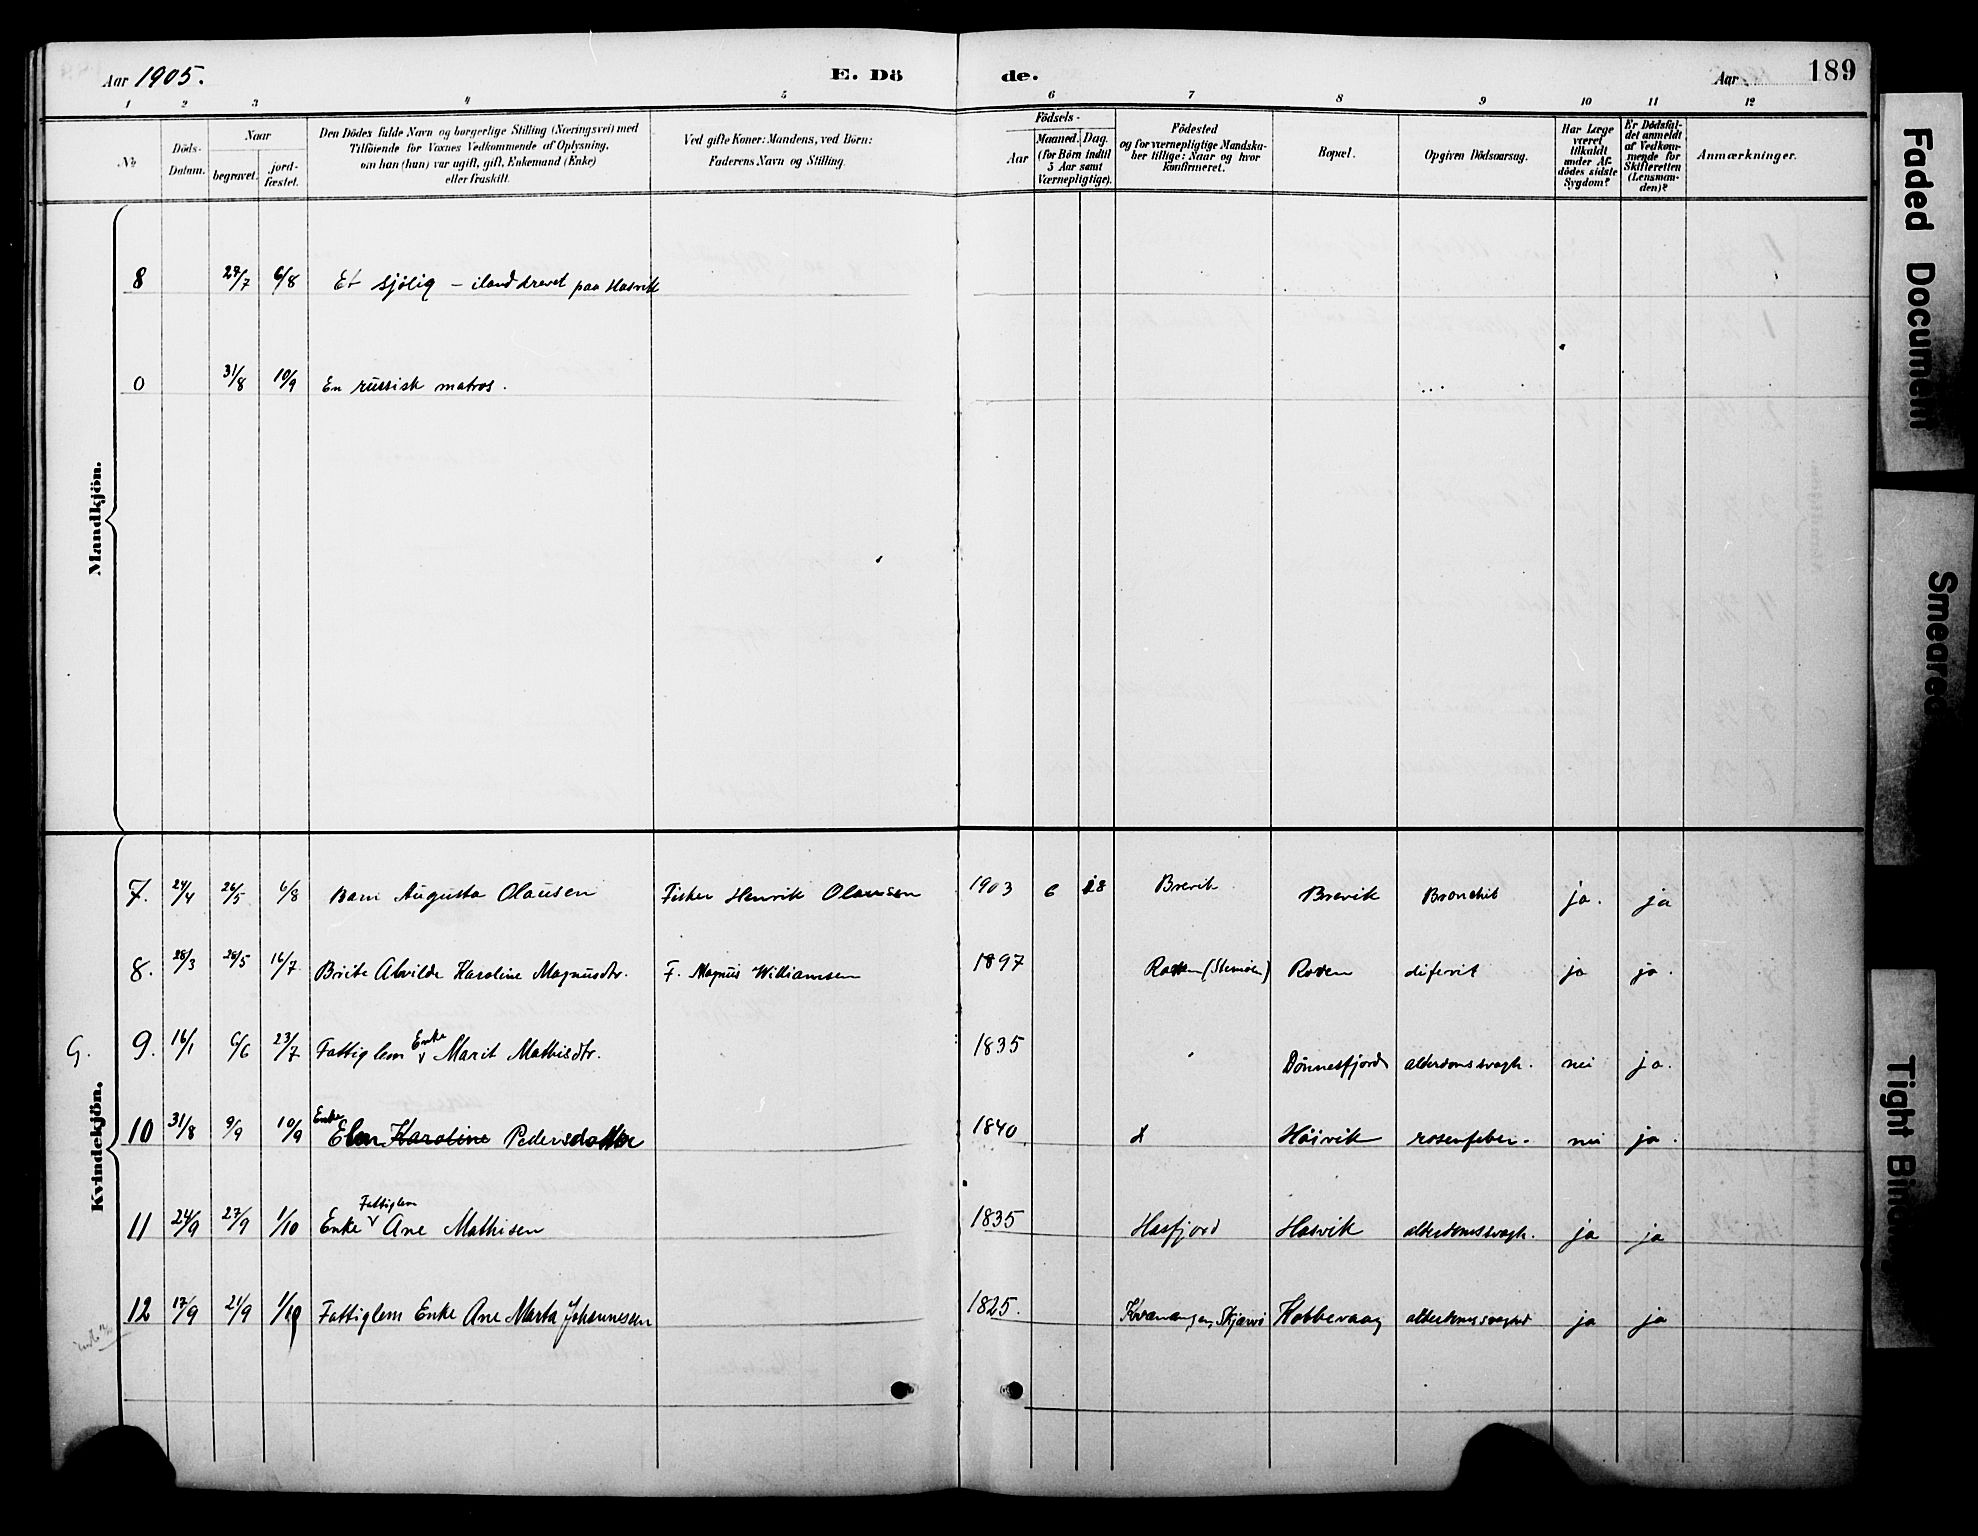 Aar 1905.
E. Dö
de.
Aar
189
1 2 3 4 5 6 7 8 9 10 11 12
No
Döds-Datum.
Naar
begravet.
jord-fæstet.
Den Dödes fulde Navn og borgerlige Stilling (Næringsvei) med
Tilföiende for Voxnes Vedkommende af Oplysning,
om han (hun) var ugift, gift, Enkemand (Enke)
eller fraskilt.
Ved gifte Koner: Mandens, ved Börn:
Faderens Navn og Stilling.
Födsels-
Aar
Maaned. Dag.
(for Börn indtil
5 Aar samt
Værnepligtige).
Födested
og for værnepligtige Mandska-
ber tillige: Naar og hvor
konfirmeret.
Bopæl.
Opgiven Dödsaarsag.
Har Læge
været
tilkaldt
under Af-
dödes sidste
Sygdom?
Er Dödsfal-
det anmeldt
af Vedkom-
mende for
Skifteretten
(Lensman-
den)?
Anmærkninger.
Mandkjön.
8 27/7 6/8 Et sjölig – ilanddrevet paa Hasvik
0 31/8 10/9 En russisk matros.
Kvindekjön.
7. 24/4 26/5 6/8 Barn Augusta Olausen Fisker Henrik Olausen 1903 6 18 Brevik Brevik Bronchit ja. ja
8. 28/3 28/5 16/7 Brite Alvilde Karoline Magnusdtr. F. Magnus Williamsen 1897 Roden ja ja.
G. 9. 16/1 6/6 23/7 Fattiglem Enke Marit Mathisdtr. 1835 Dönnesfjord alderdomssvagh. nei ja.
10 31/8 9/9 10/9 Enke Elen Karoline Pedersdatter 1840 Höivik rosenfeber. nei ja.
11 24/9 27/9 1/10 Enke Fattiglem Ane Mathisen 1835 Hasfjord Hasvik alderdomssvagh. ja ja
12 17/9 21/9 1/10 Fattiglem Enke Ane Marta Johannesen 1825. Kvænangen, Skjærvö Kobbevaag alderdomssvaghed ja ja
Faded Document
Smeared
Tight Bind